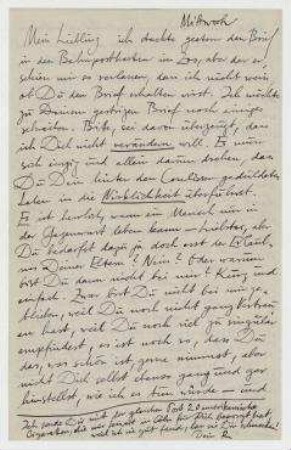 Mittwoch
Mein Liebling ich dachte gestern den Brief
in den Bahnpostkasten in Zoo, aber da er
schien mir so verloren, dass ich nicht weiss
ob Du den Brief erhalten wirst. Ich möchte
zu Deinem gestrigen Brief noch einiges
schreiben. Bitte, sei davon überzeugt, dass
ich Dich nicht verändern will. Es muss
sich einzig und allein darum drehen, dass
Du Dein hinter den Coulissen geduldetes
Leben in die Wirklichkeit überführst.
Es ist herrlich, wenn ein Mensch nur in
der Gegenwart leben kann — Liebster, aber
Du bedarfst dazu ja doch erst der Erlaub-
nis Deiner Eltern? Nein? Oder warum
bist Du dann nicht bei mir? Kurz und
einfach. Zwar bist Du nicht bei mir ge-
blieben, weil Du noch nicht ganz
hast, weil Du noch viel zu singulär
empfindest, es ist noch so, dass Du
das, was schön ist gerne nimmst, aber
nicht Dich selbst ebenso ganz und gar
hinstellst, wie ich es tun würde — und
Ich sende Du mit der gleichen Post 20 amerikanische
Cigaretten, die mir jemand in Köln für Dich besorgt hat,
weil ich so gut fand, lass sie Dir schmecken!
Dein